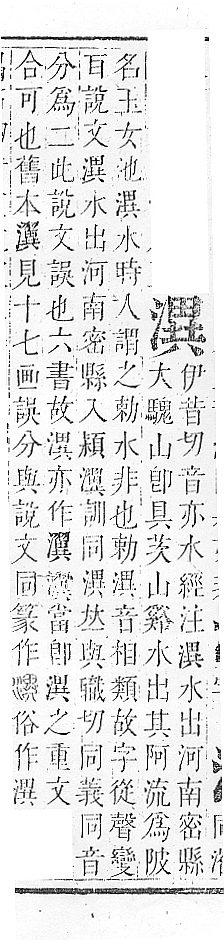 潩
伊昔切音亦水經注潩水出河南密縣
大騩山卽具茨山谿水出其阿流爲陂
名玉女池潩水時人謂之勅水非也勅潩音相類故字從聲變
耳說文潩水出河南密縣入潁瀷訓同潩𠀤與職切同義同音
分爲二此說文誤也六書故潩亦作瀷當卽潩之重文
合可也舊本瀷見十七画誤分與說文同篆作俗作潩